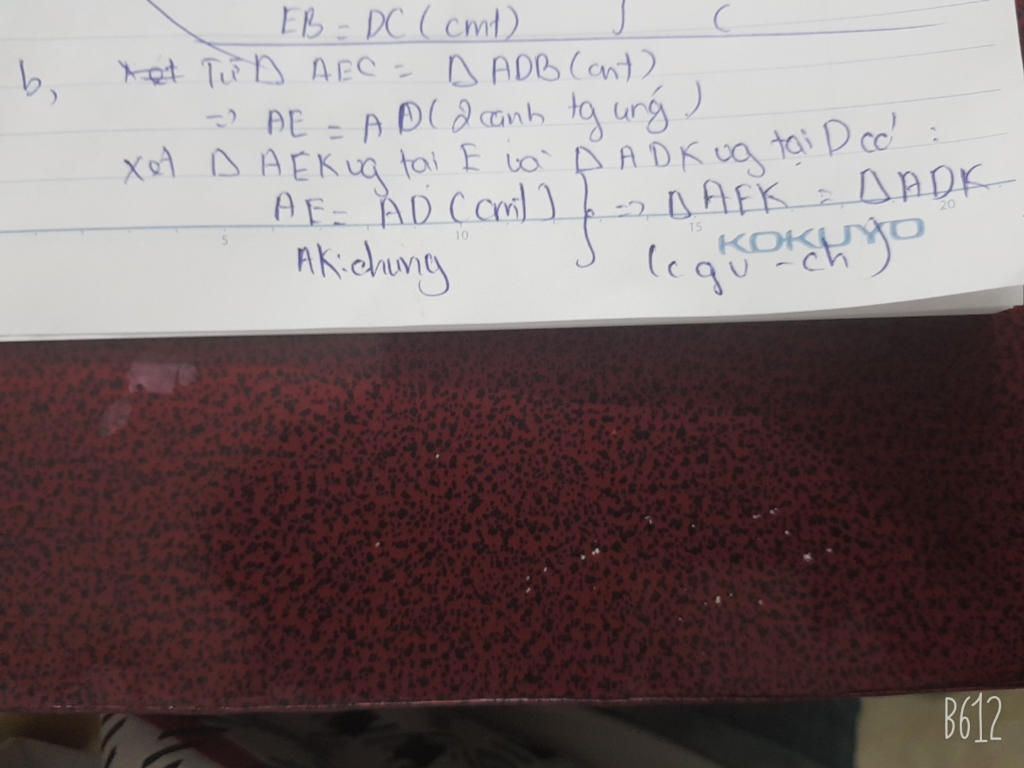 EB = DC (cmt)
b, xét Từ Δ AEC = Δ ADB (cmt)
=> AE = AD (2 cạnh tg ứng)
xét Δ AEK vg tại E và Δ ADK vg tại D có :
AE = AD (cmt) } => Δ AEK = Δ ADK
AK: chung (cgv - ch)
5 10 15 20
KOKUYO
B612